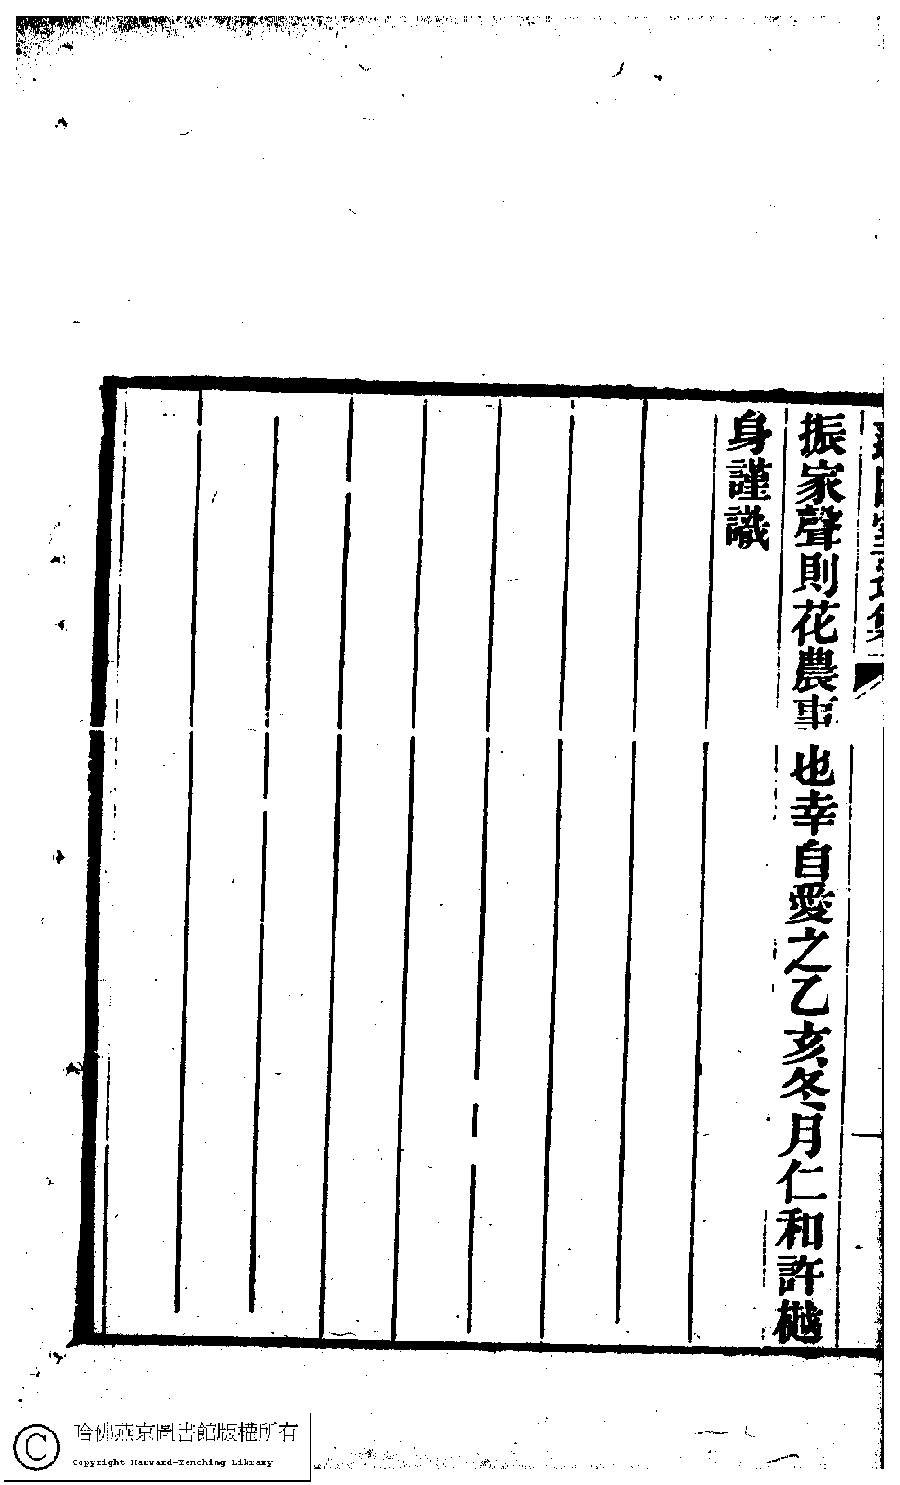 振家聲則花農事也幸自愛之乙亥冬月仁和許樾
身謹識
哈佛燕京圖書館版權所有
Copyright Harvard-Yenching Library